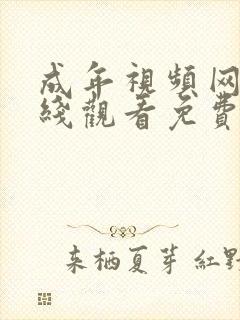 成年視頻网
綫觀看免費
来栖夏芽 红野